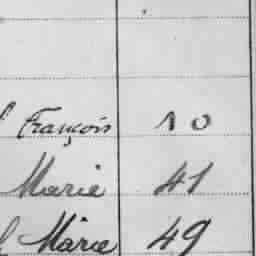 François 10
Marie 41
Marie 49